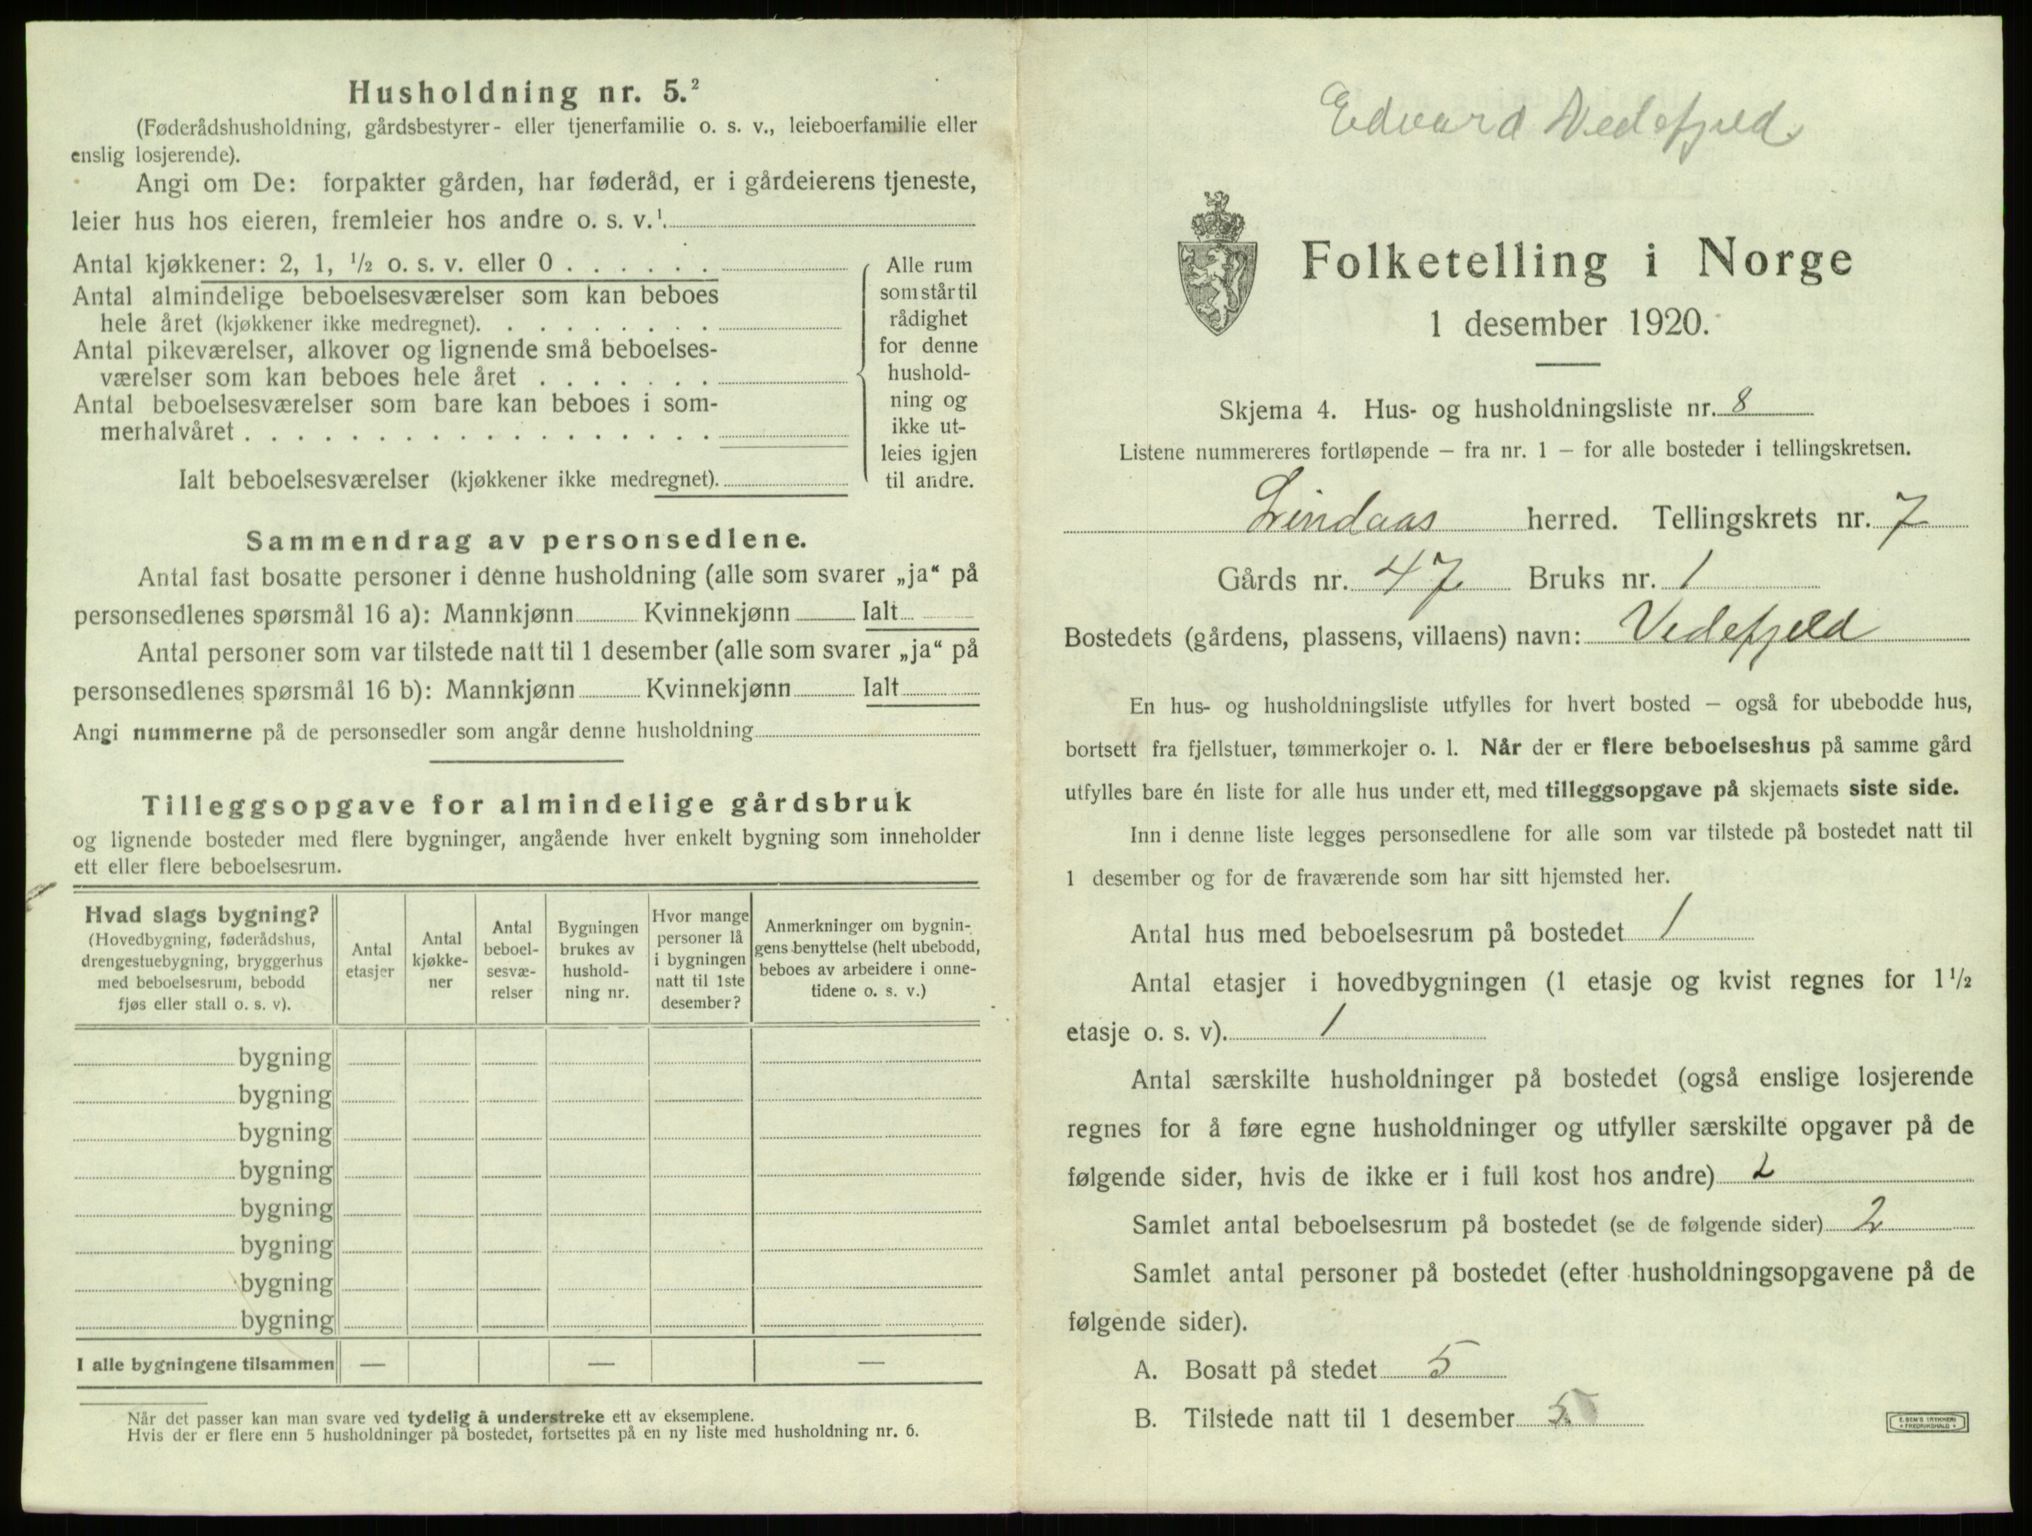 Husholdning nr. 5.²
(Føderådshusholdning, gårdsbestyrer- eller tjenerfamilie o. s. v., leieboerfamilie eller
enslig losjerende).
Angi om De: forpakter gården, har føderåd, er i gårdeierens tjeneste,
leier hus hos eieren, fremleier hos andre o. s. v.¹
Antal kjøkkener: 2, 1, ½ o. s. v. eller 0 . . . . . .
Antal almindelige beboelsesværelser som kan beboes
hele året (kjøkkener ikke medregnet). . . . . . . . .
Antal pikeværelser, alkover og lignende små beboelses-
værelser som kan beboes hele året . . . . . . .
Antal beboelsesværelser som bare kan beboes i som-
merhalvåret . . . . . . . . . . . . . . . . . .
Ialt beboelsesværelser (kjøkkener ikke medregnet).
Alle rum
som står til
rådighet
for denne
hushold-
ning og
ikke ut-
leies igjen
til andre.
Sammendrag av personsedlene.
Antal fast bosatte personer i denne husholdning (alle som svarer „ja“ på
personsedlenes spørsmål 16 a): Mannkjønn Kvinnekjønn Ialt
Antal personer som var tilstede natt til 1 desember (alle som svarer „ja“ på
personsedlenes spørsmål 16 b): Mannkjønn Kvinnekjønn Ialt
Angi nummerne på de personsedler som angår denne husholdning
Tilleggsopgave for almindelige gårdsbruk
og lignende bosteder med flere bygninger, angående hver enkelt bygning som inneholder
ett eller flere beboelsesrum.
Hvad slags bygning?
(Hovedbygning, føderådshus,
drengestuebygning, bryggerhus
med beboelsesrum, bebodd
fjøs eller stall o. s. v).
Antal
etasjer
Antal
kjøkke-
ner
Antal
beboel-
sesvæ-
relser
Bygningen
brukes av
hushold-
ning nr.
Hvor mange
personer lå
i bygningen
natt til 1ste
desember?
Anmerkninger om bygnin-
gens benyttelse (helt ubebodd,
beboes av arbeidere i onne-
tidene o. s. v.)
bygning
bygning
bygning
bygning
bygning
bygning
bygning
bygning
I alle bygningene tilsammen — — —
Når det passer kan man svare ved tydelig å understreke ett av eksemplene.
Hvis der er flere enn 5 husholdninger på bostedet, fortsettes på en ny liste med husholdning nr. 6.
Edvard Vedefjeld
Folketelling i Norge
1 desember 1920.
Skjema 4. Hus- og husholdningsliste nr. 8
Listene nummereres fortløpende – fra nr. 1 – for alle bosteder i tellingskretsen.
Lindaas herred. Tellingskrets nr. 7
Gårds nr. 47 Bruks nr. 1
Bostedets (gårdens, plassens, villaens) navn: Vedefjeld
En hus- og husholdningsliste utfylles for hvert bosted – også for ubebodde hus,
bortsett fra fjellstuer, tømmerkojer o. l. Når der er flere beboelseshus på samme gård
utfylles bare én liste for alle hus under ett, med tilleggsopgave på skjemaets siste side.
Inn i denne liste legges personsedlene for alle som var tilstede på bostedet natt til
1 desember og for de fraværende som har sitt hjemsted her.
Antal hus med beboelsesrum på bostedet 1
Antal etasjer i hovedbygningen (1 etasje og kvist regnes for 1½
etasje o. s. v). 1
Antal særskilte husholdninger på bostedet (også enslige losjerende
regnes for å føre egne husholdninger og utfyller særskilte opgaver på de
følgende sider, hvis de ikke er i full kost hos andre) 2
Samlet antal beboelsesrum på bostedet (se de følgende sider) 2
Samlet antal personer på bostedet (efter husholdningsopgavene på de
følgende sider).
A. Bosatt på stedet 5
B. Tilstede natt til 1 desember 5